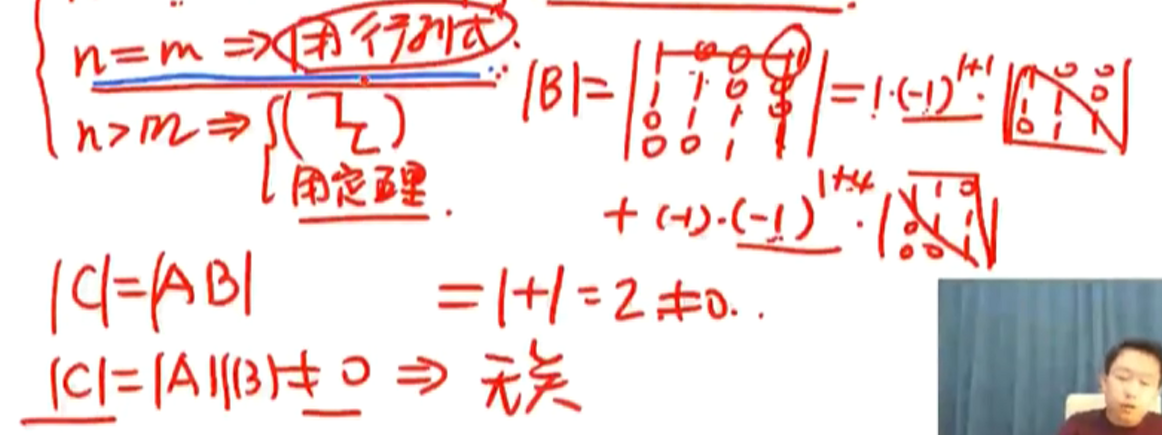 n=m ⇒ 用行列式.
n>m ⇒
用定理.
|B|= | 1 0 0 -1
1 1 0 0
0 1 1 0
0 0 1 1 | =1·(-1)^{1+1}· | 1 0 0
1 1 0
0 1 1 |
+ (-1)·(-1)^{1+4}· | 1 1 0
0 1 1
0 0 1 |
=1+1=2≠0..
|C|=|AB|
|C|=|A||B|≠0 ⇒ 无关